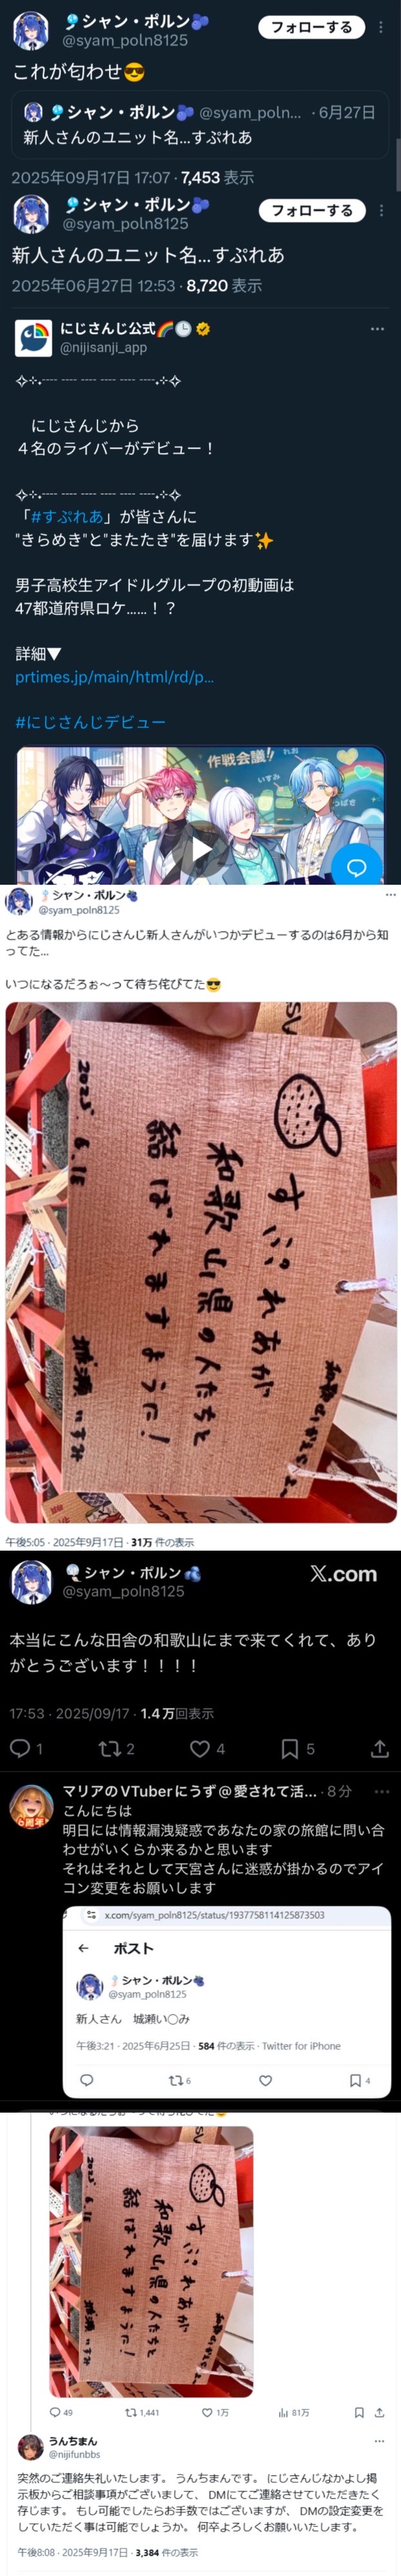 シャン・ポルン
@syam_poln8125
フォローする
これが匂わせ😎
シャン・ポルン🫐 @syam_poln... · 6月27日
新人さんのユニット名...すぷれあ
2025年09月17日 17:07 · 7,453 表示
シャン・ポルン🫐
@syam_poln8125
フォローする
新人さんのユニット名...すぷれあ
2025年06月27日 12:53 · 8,720 表示
にじさんじ公式🌈🕒
@nijisanji_app
にじさんじから
４名のライバーがデビュー！
「#すぷれあ」が皆さんに
"きらめき"と"またたき"を届けます✨
男子高校生アイドルグループの初動画は
47都道府県ロケ……！？
詳細▼
prtimes.jp/main/html/rd/p...
#にじさんじデビュー
作戦会議!
れお
いすみ
つばさ
シャン・ポルン🍇
@syam_poln8125
とある情報からにじさんじ新人さんがいつかデビューするのは6月から知
ってた...
いつになるだろぉ〜って待ち侘びてた😎
すぷれあが
和歌山県の人たちと
結ばれますように!
2025. 6. 18
城瀬いすみ
午後5:05 · 2025年9月17日 · 31万 件の表示
シャン・ポルン🫐
@syam_poln8125
X.com
本当にこんな田舎の和歌山にまで来てくれて、あり
がとうございます！！！！
17:53 · 2025/09/17 · 1.4万回表示
1
2
4
5
マリアのVTuberにうず@愛されて活... · 8分
こんにちは
明日には情報漏洩疑惑であなたの家の旅館に問い合
わせがいくらか来るかと思います
それはそれとして天宮さんに迷惑が掛かるのでアイ
コン変更をお願いします
x.com/syam_poln8125/status/1937758114125873503
ポスト
シャン・ポルン🍇
@syam_poln8125
新人さん　城瀬い〇み
午後3:21 · 2025年6月25日 · 584 件の表示 · Twitter for iPhone
6
4
すぷれあが
和歌山県の人たちと
結ばれますように!
2025. 6. 18
城瀬いすみ
49
1,441
1万
81万
うんちまん
@nijifunbbs
突然のご連絡失礼いたします。 うんちまんです。 にじさんじなかよし掲
示板からご相談事項がございまして、 DMにてご連絡させていただきたく
存じます。 もし可能でしたらお手数ではございますが、 DMの設定変更を
していただく事は可能でしょうか。 何卒よろしくお願いいたします。
午後8:08 · 2025年9月17日 · 3,384 件の表示